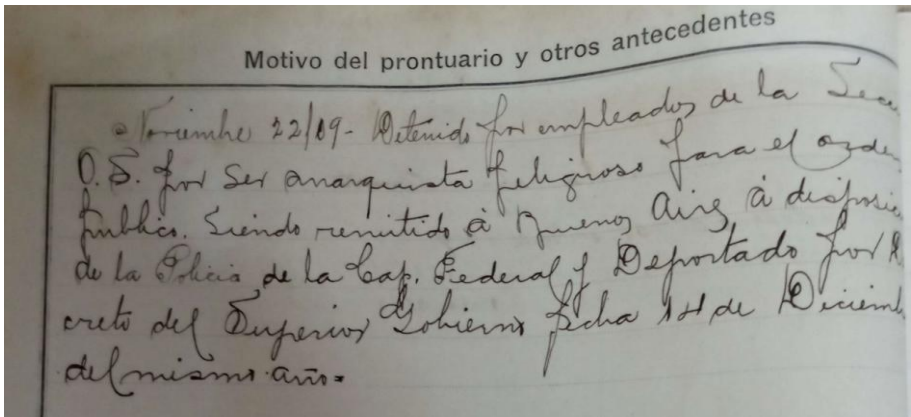 Motivo del prontuario y otros antecedentes
Noviembre 22/09- Detenido por empleados de la Secc
O.S. por ser anarquista peligroso para el orden
publico. Siendo remitido á Buenos Aires á disposic
de la Policia de la Cap. Federal y Deportado por D
creto del Superior Gobierno fcha de Diciemb
del mismo año=